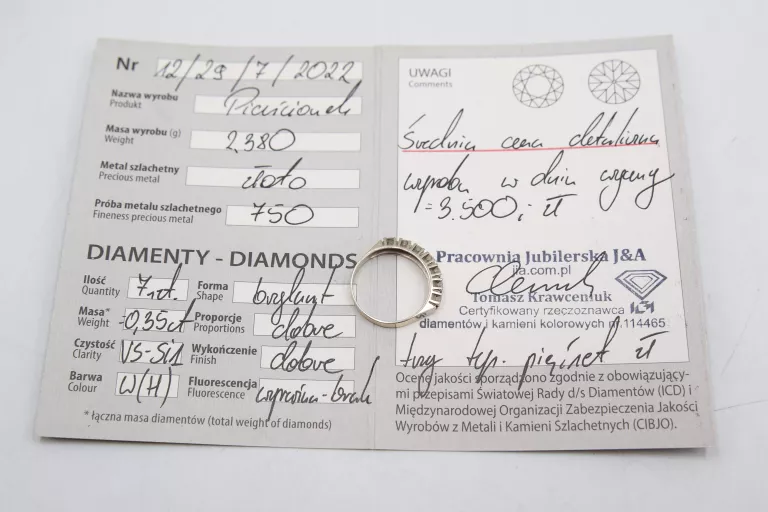 Nr 12/29/7/2022
Nazwa wyrobu Pierścionek
Produkt
Masa wyrobu (g) 2,380
Weight
Metal szlachetny złoto
Precious metal
Próba metalu szlachetnego 750
Fineness precious metal
DIAMENTY - DIAMONDS
Ilość 7szt. Forma brylant
Quantity Shape
Masa* ~0,35ct Proporcje dobre
Weight Proportions
Czystość VS-Si1 Wykończenie dobre
Clarity Finish
Barwa W(H) Fluorescencja
Colour Fluorescence
* łączna masa diamentów (total weight of diamonds)
UWAGI
Comments
Średnia cena detaliczna
wyrobu w dniu wyceny
= 3.500,- zł
Pracownia Jubilerska J&A
jja.com.pl
Tomasz Krawceniuk
Certyfikowany rzeczoznawca
diamentów i kamieni kolorowych nr 114465
trzy tys. pięćset zł
Ocenę jakości sporządzono zgodnie z obowiązujący-
mi przepisami Światowej Rady d/s Diamentów (ICD) i
Międzynarodowej Organizacji Zabezpieczenia Jakości
Wyrobów z Metali i Kamieni Szlachetnych (CIBJO).